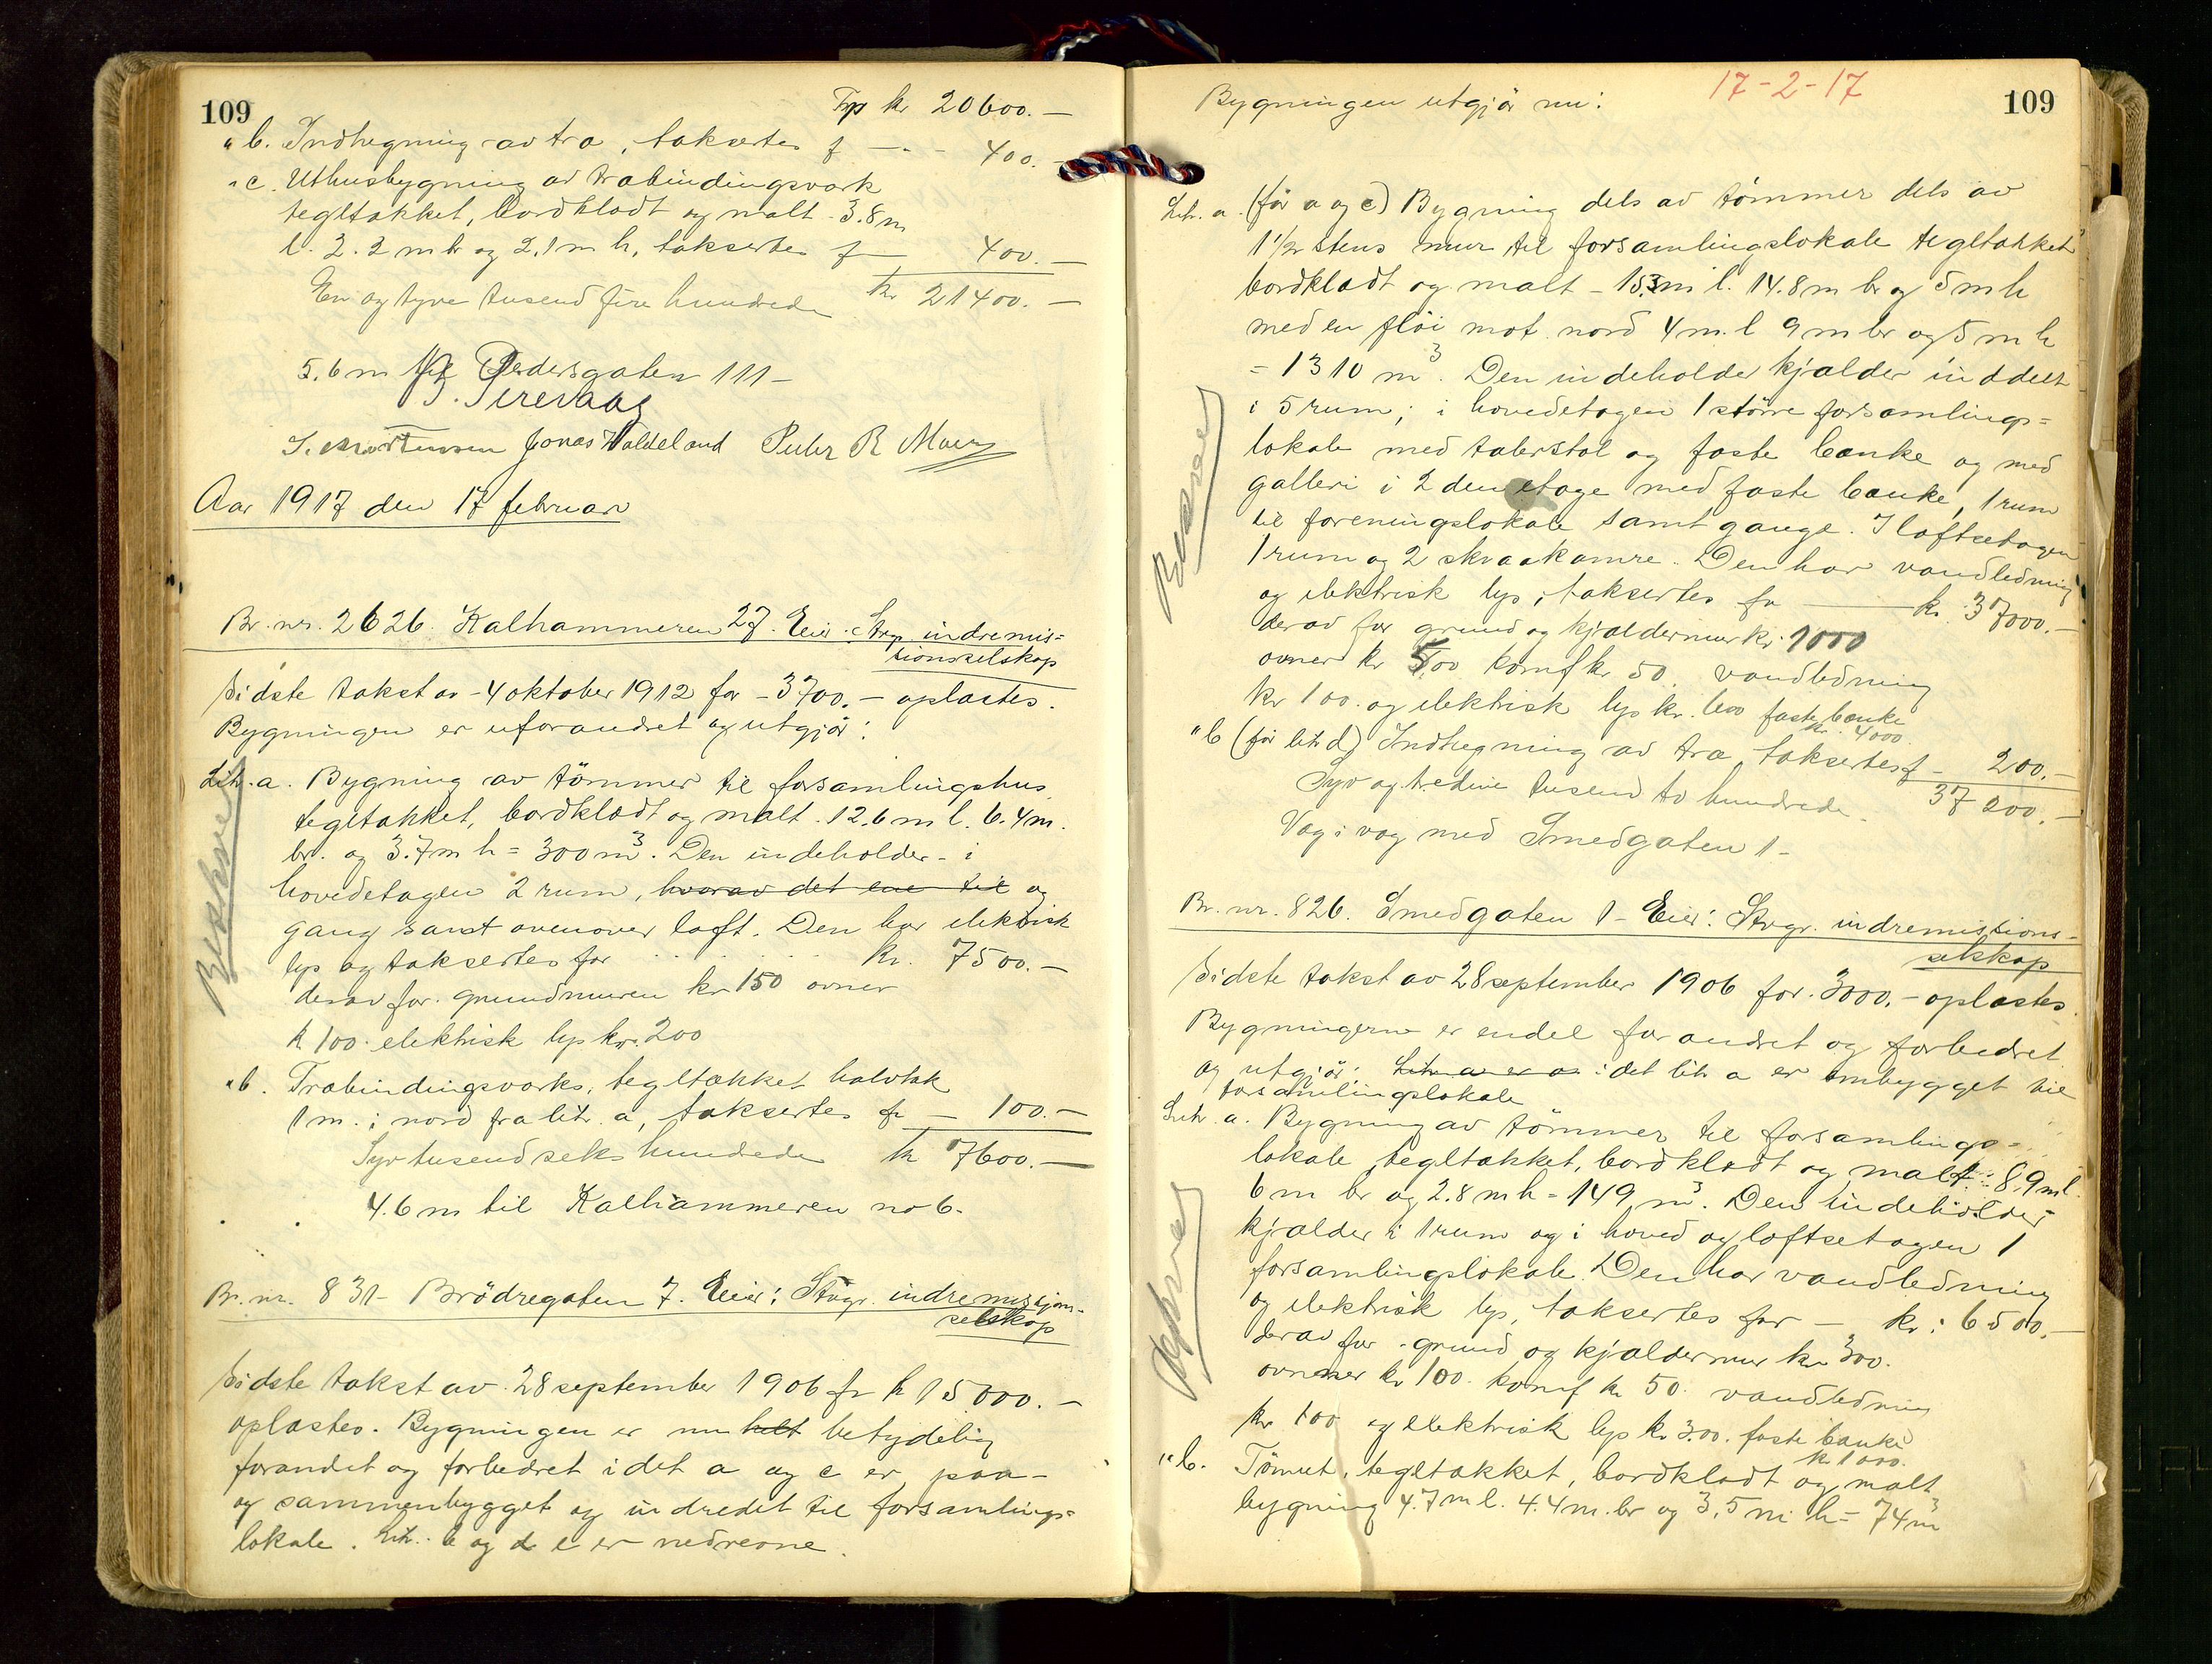 109
Trp kr 20600.—
" b. Indhegning av træ, taksertes f — · - 400.—
" c. Uthusbygning av træbindingsverk
tegltækket, bordklædt og malt. 3.8 m
l. 2.2 m br og 2.1 m h, taksertes f — 400.—
En og tyve tusend fire hundrede kr 21400.—
5.6 m til Pedersgaten 111 —
S. Mortensen Jonas Waldeland Peder R Moen
Aar 1917 den 17 februar
Br. nr. 2626. Kalhammeren 27. Eier: Stvgr. indremis=
sionsselskap
Sidste takst av 4 oktober 1912 for 3700.— oplæstes.
Bygningen er uforandret og utgjør:
Litr. a. Bygning av tømmer til forsamlingshus,
tegltækket, bordklædt og malt. 12.6 m l. 6.4 m.
br. og 3.7 m h = 300 m³. Den indeholder - i
hovedetagen 2 rum, hvorav det ene til og
gang samt ovenover loft. Den har elektrisk
lys og taksertes for . . . . . kr. 7500.—
derav for grundmuren kr 150 ovner
kr 100. elektrisk lys kr. 200
" b. Træbindingsverks, tegltækket halvtak
1 m. i nord fra litr. a, taksertes fr — 100.—
Syv tusend seks hundrede kr 7600.—
4.6 m til Kalhammeren no 6.
Br. nr. 831 - Brødregaten 7. Eier: Stvgr. indremisjons-
selskap
Sidste takst av 28 september 1906 fr kr 15000.—
oplæstes. Bygningen er nu helt betydelig
forandret og forbedret idet a og c er paa-
og sammenbygget og indredet til forsamlings=
lokale. Litr. b og d e er nedrevne.
Beskrevet
17-2-17
109
Bygningen utgjør nu:
Litr. a. (før a og c) Bygning dels av tømmer dels av
1 1/2 stens mur til forsamlingslokale tegltækket
bordklædt og malt - 15.3 m l. 14.8 m br og 5 m h
med en fløi mot nord 4 m. l 9 m br og 5 m h
= 1310 m³. Den indeholder kjælder inddelt
i 5 rum; i hovedetagen 1 større forsamlings=
lokale med talerstol og faste bænke og med
galleri i 2 den etage med faste bænke, 1 rum
til foreningslokale samt gange. I loftsetagen
1 rum og 2 skraakamre. Den har vandledning
og elektrisk lys, taksertes for — kr. 37000.—
derav for grund og kjældermur kr. 1000
ovner kr 500 komf kr 50. vandledning
kr 100. og elektrisk lys kr. 600 faste bænke
kr. 4000.
" b (før litr d) Indhegning av træ, taksertes f — 200.—
Syv og tredive tusend to hundrede. 37200.—
Væg i væg med Smedgaten 1 -
Br. nr. 826. Smedgaten 1 - Eier: Stvgr. indremissions-
selskap
Sidste takst av 28 september 1906 for 3000.— oplæstes.
Bygningerne er endel forandret og forbedret
og utgjør: Litr a er a idet litr a er ombygget til
forsamlingslokale
Litr. a. Bygning av tømmer til forsamlings=
lokale, tegltækket, bordklædt og malt. 8.9 m l.
6 m br og 2.8 m h = 149 m³. Den indeholder
kjælder i 1 rum og i hoved og loftsetagen 1
forsamlingslokale. Den har vandledning
og elektrisk lys, taksertes for — kr: 6500.—
derav for grund og kjældermur kr 300.
ovner kr 100. komf kr 50. vandledning
kr 100 og elektrisk lys kr 300. faste bænke
kr 1000.
" b. Tømret, tegltækket, bordklædt og malt
bygning 4.7 m l. 4.4 m. br og 3.5 m h = 74 m³